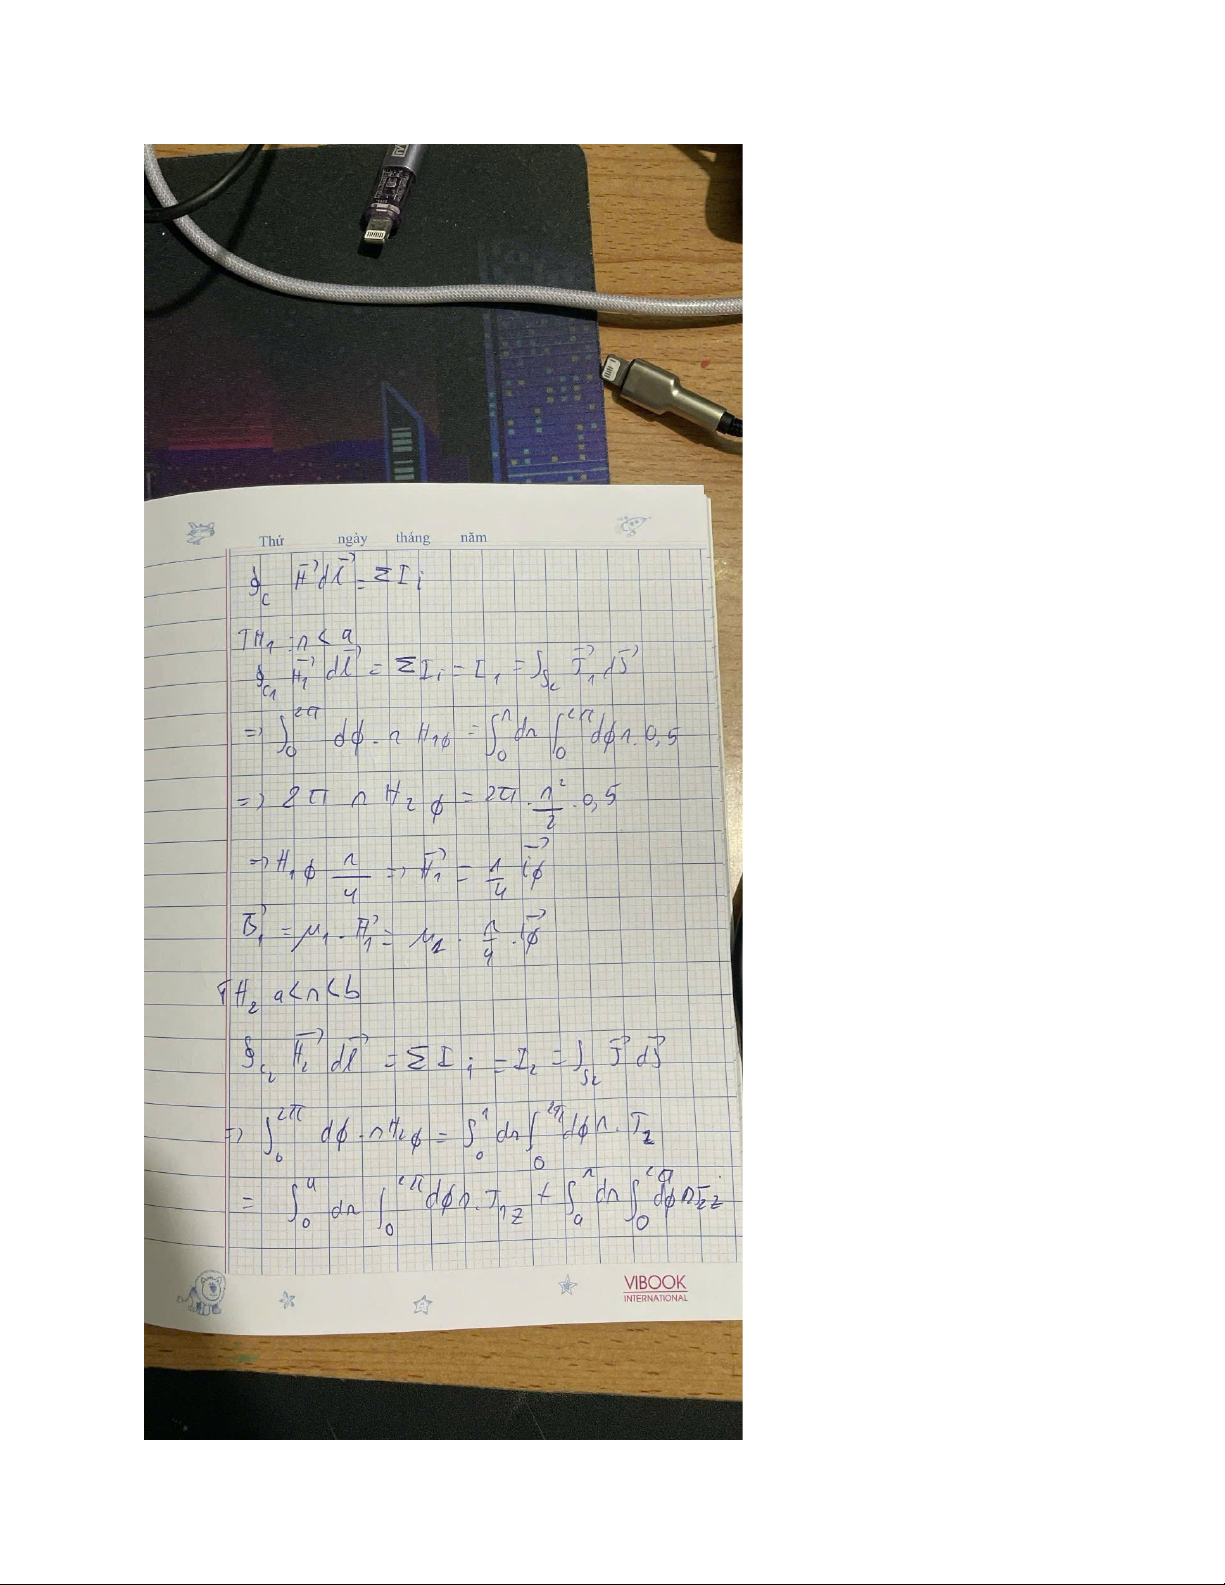 Thứ ngày tháng năm
∮_C H⃗ dl⃗ = ΣI_i
TH₁ : r < a
∮_C₁ H⃗₁ dl⃗ = ΣI_i = I₁ = ∫_S₂ J⃗₁ dS⃗
=> ∫₀^2π dϕ . r H₁ϕ = ∫₀^r dr ∫₀^2π dϕ r . 0,5
=> 2π r H₂ϕ = 2π . r²/2 . 0,5
=> H₁ϕ r/4 => H⃗₁ = r/4 i⃗ϕ
B⃗₁ = μ₁ . H⃗₁ = μ₁ . r/4 . i⃗ϕ
TH₂ a < r < b
∮_C₂ H⃗₂ dl⃗ = ΣI_i = I₂ = ∫_S₂ J⃗ dS⃗
=> ∫₀^2π dϕ . r H₂ϕ = ∫₀^r dr ∫₀^2π dϕ r . J_z
= ∫₀^a dr ∫₀^2π dϕ r . J₁z + ∫_a^r dr ∫₀^2π dϕ r J₂z
VIBOOK
INTERNATIONAL